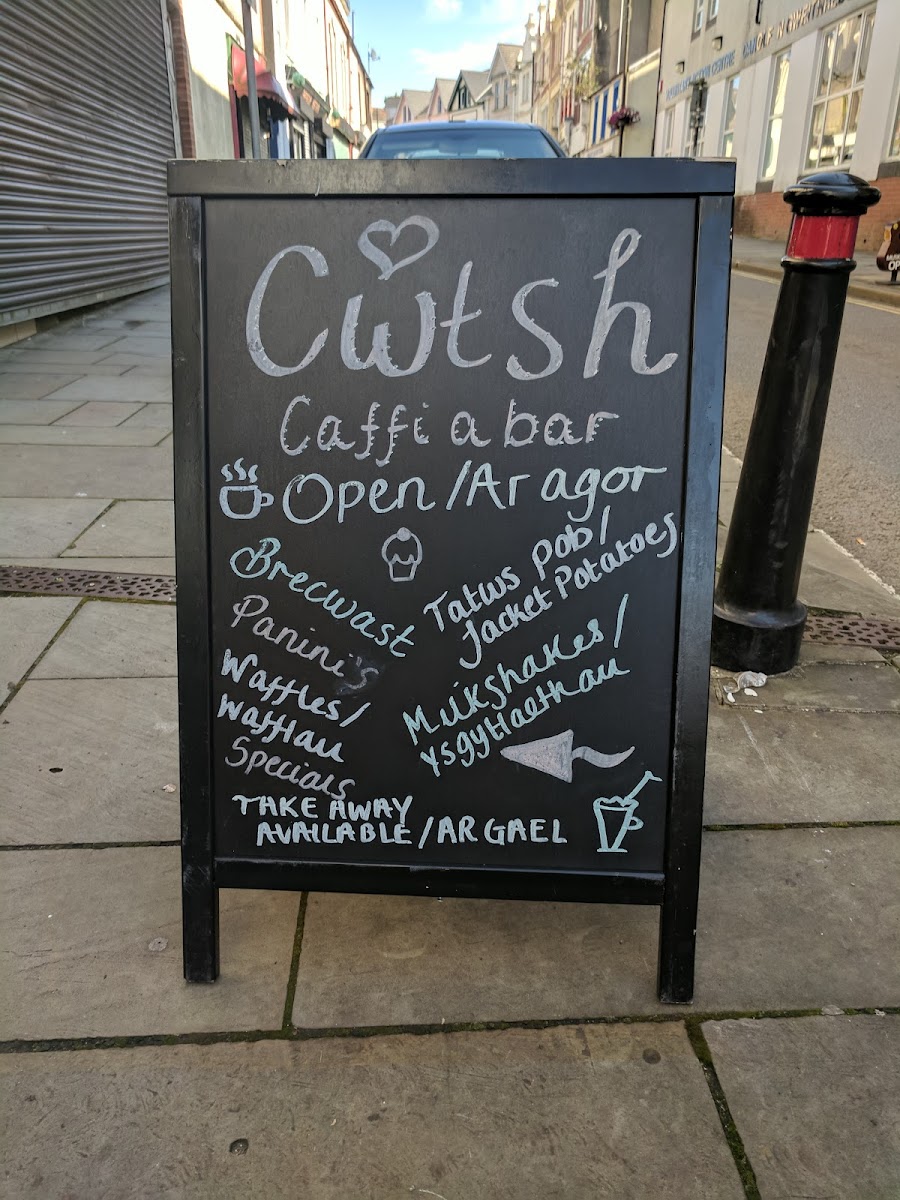 Cwtsh
Caffi a bar
Open/Ar agor
Brecwast
Panini's
Waffles/
Wafflau
Specials
Tatws pob/
Jacket Potatoes
Milkshakes/
Ysgytlaethau
TAKE AWAY
AVAILABLE/AR GAEL